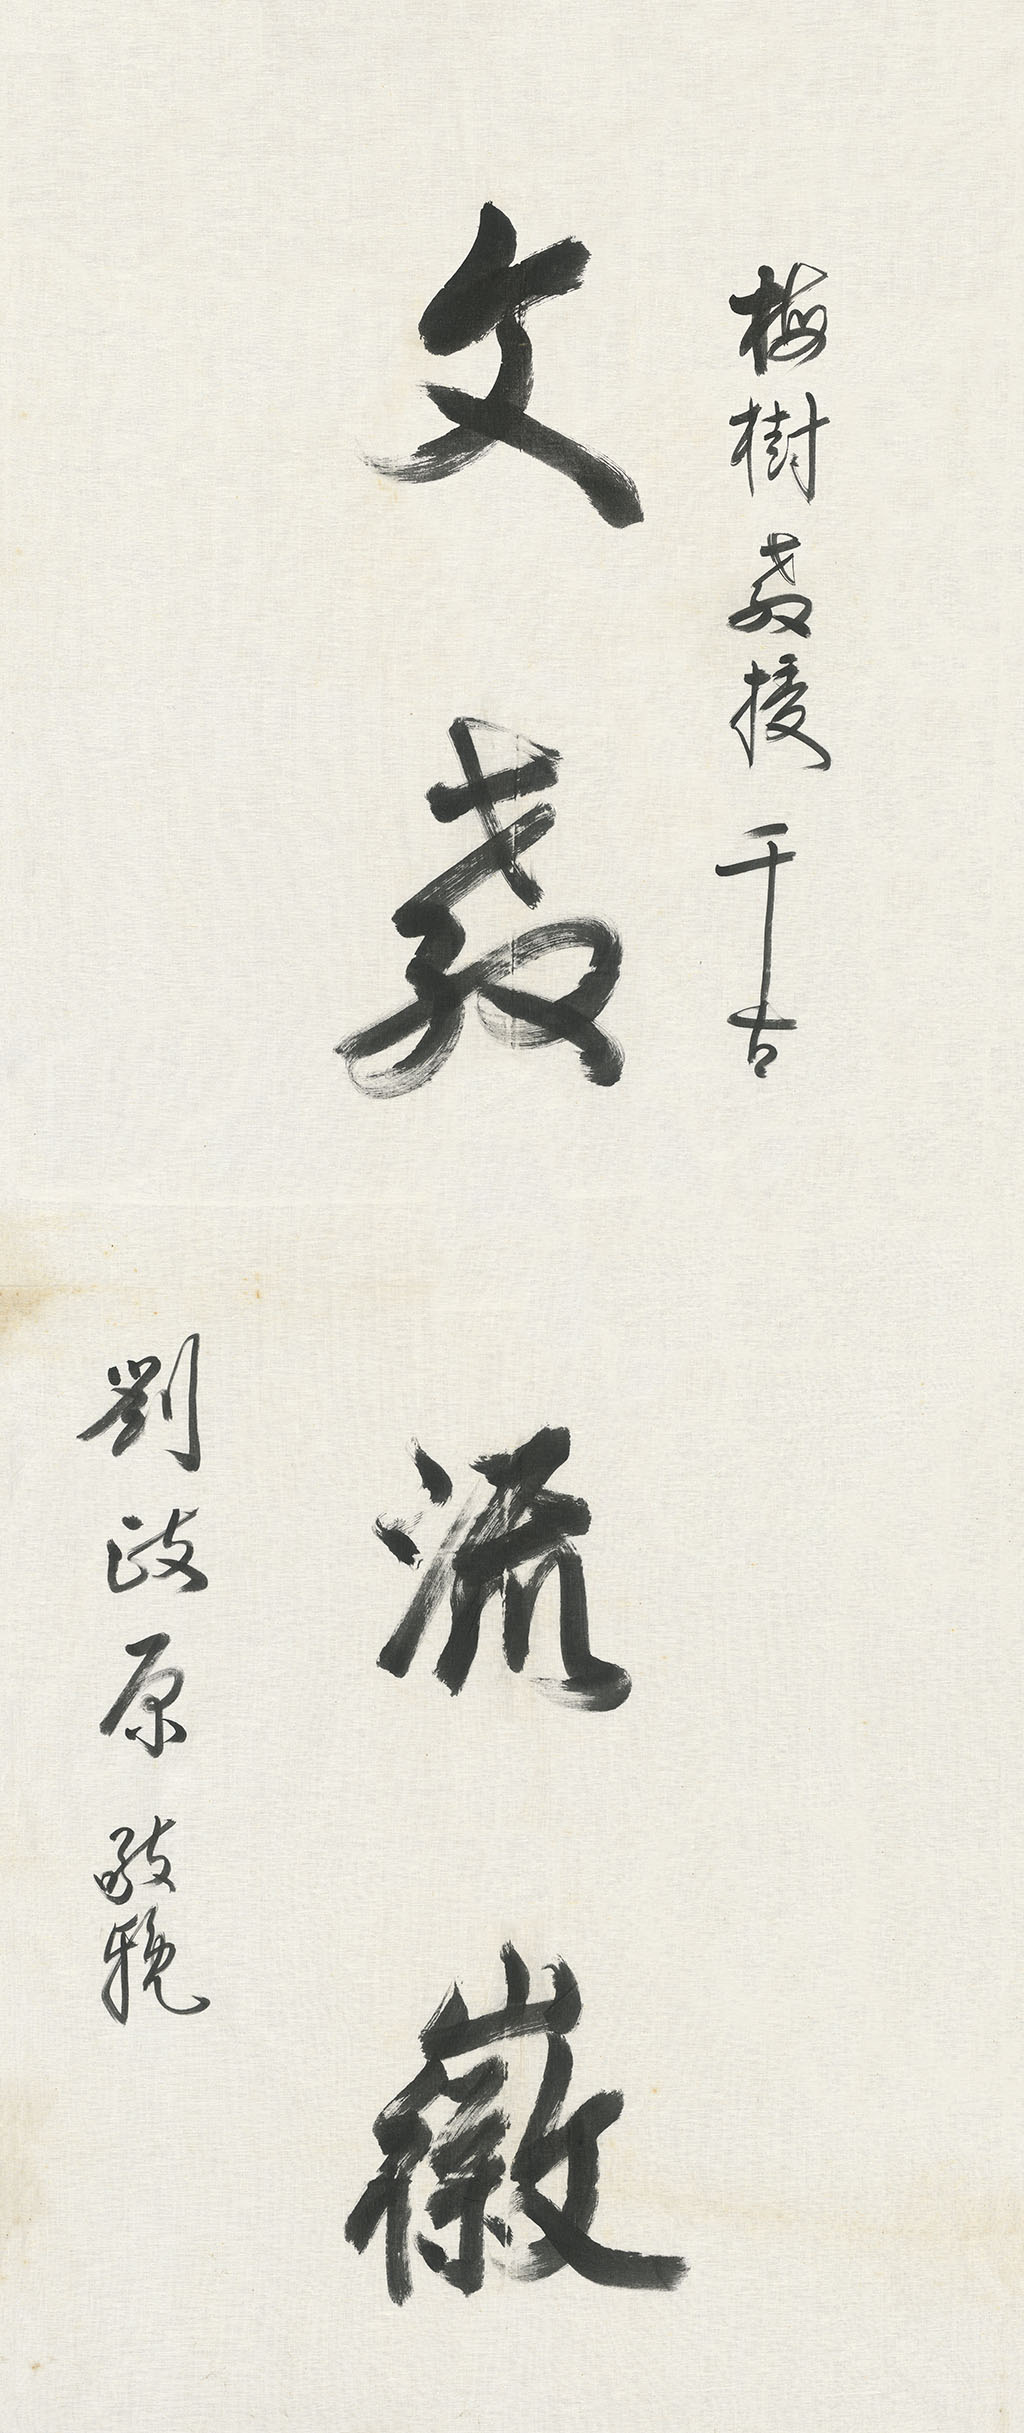 梅樹教授 千古
文教流徽
劉政原 敬輓